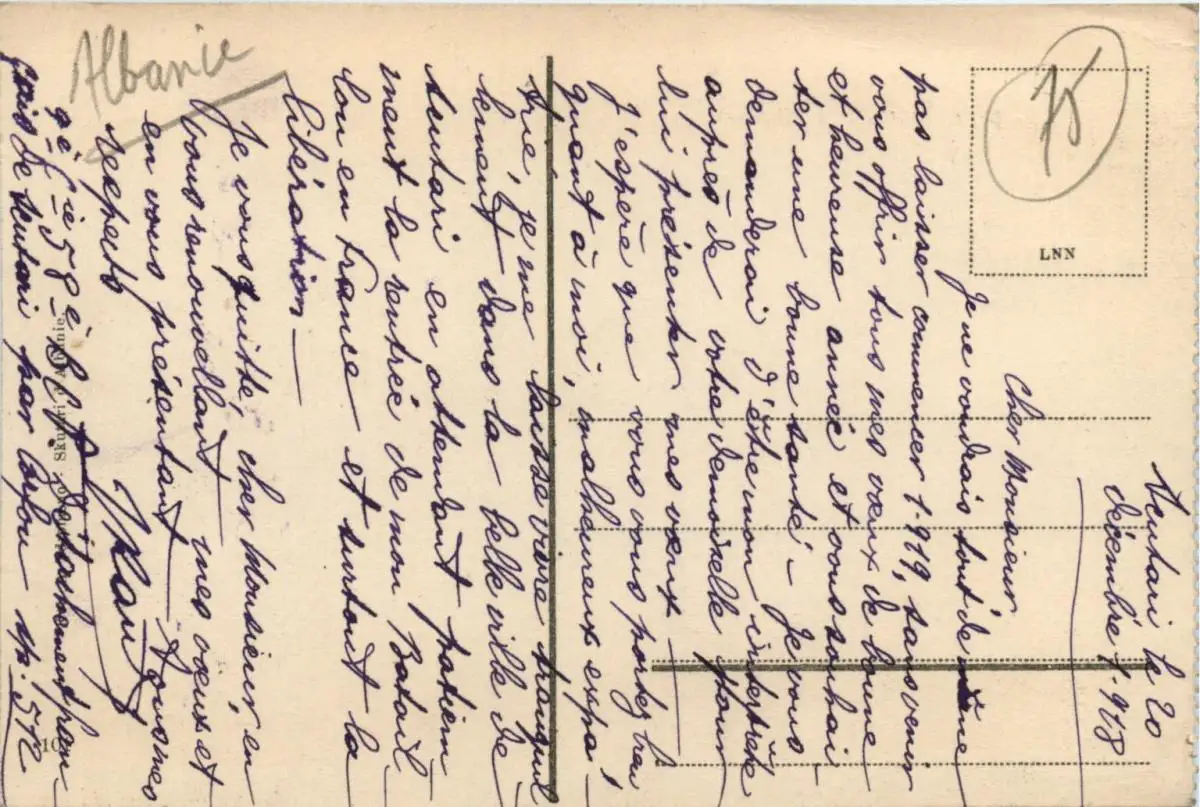 Scutari le 20
décembre 1.918
Cher Monsieur,
Je ne voudrais tout de même
pas laisser commencer 1.919, sans venir
vous offrir tous mes vœux de bonne
et heureuse année et vous souhai
ter une bonne santé - Je vous
demanderai d'être mon interprète
auprès de votre demoiselle pour
lui présenter mes vœux -
J'espère que vous vous portez bien
quant à moi, malheureux expa-
trié, je me laisse vivre tranquil
lement dans la belle ville de
Scutari en attendant patiem
ment la rentrée de mon Batail
lon en France et surtout la
libération -
Je vous quitte, cher Monsieur, en
vous renouvellant mes vœux et
en vous présentant tous mes
respects
58e
détachement fran
çais de Scutari par
sp. 512
Albanie
75
LNN
Albanie
10